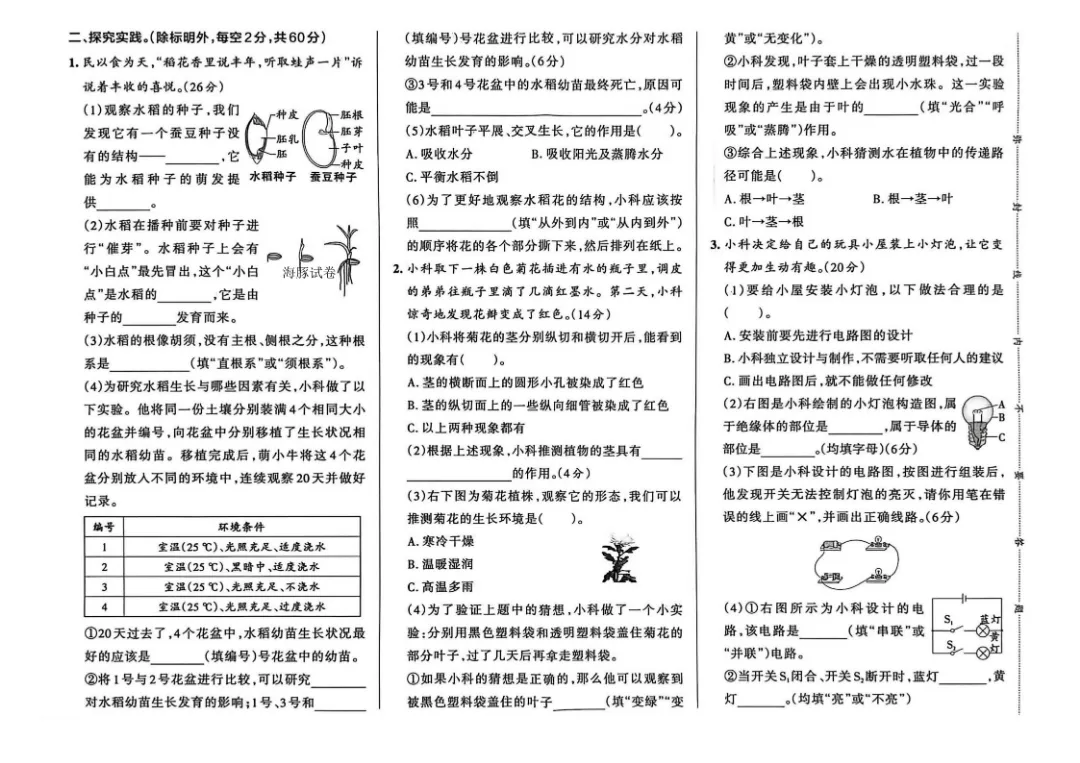 二、探究实践。(除标明外,每空2分,共60分)
1.民以食为天,“稻花香里说丰年,听取蛙声一片”诉
说着丰收的喜悦。(26分)
(1)观察水稻的种子,我们
发现它有一个蚕豆种子没
有的结构——________,它
能为水稻种子的萌发提
供________。
种皮
胚乳
胚
水稻种子
胚根
胚芽
子叶
种皮
蚕豆种子
(2)水稻在播种前要对种子进
行“催芽”。水稻种子上会有
“小白点”最先冒出,这个“小白
点”是水稻的________,它是由
种子的________发育而来。
海豚试卷
(3)水稻的根像胡须,没有主根、侧根之分,这种根
系是____________(填“直根系”或“须根系”)。
(4)为研究水稻生长与哪些因素有关,小科做了以
下实验。他将同一份土壤分别装满4个相同大小
的花盆并编号,向花盆中分别移植了生长状况相
同的水稻幼苗。移植完成后,萌小牛将这4个花
盆分别放入不同的环境中,连续观察20天并做好
记录。
编号 环境条件
1 室温(25 ℃)、光照充足、适度浇水
2 室温(25 ℃)、黑暗中、适度浇水
3 室温(25 ℃)、光照充足、不浇水
4 室温(25 ℃)、光照充足、过度浇水
①20天过去了,4个花盆中,水稻幼苗生长状况最
好的应该是________(填编号)号花盆中的幼苗。
②将1号与2号花盆进行比较,可以研究________
对水稻幼苗生长发育的影响;1号、3号和________
(填编号)号花盆进行比较,可以研究水分对水稻
幼苗生长发育的影响。(6分)
③3号和4号花盆中的水稻幼苗最终死亡,原因可
能是________________________________。(4分)
(5)水稻叶子平展、交叉生长,它的作用是(  )。
A.吸收水分 B.吸收阳光及蒸腾水分
C.平衡水稻不倒
(6)为了更好地观察水稻花的结构,小科应该按
照______________(填“从外到内”或“从内到外”)
的顺序将花的各个部分撕下来,然后排列在纸上。
2.小科取下一株白色菊花插进有水的瓶子里,调皮
的弟弟往瓶子里滴了几滴红墨水。第二天,小科
惊奇地发现花瓣变成了红色。(14分)
(1)小科将菊花的茎分别纵切和横切开后,能看到
的现象有(  )。
A.茎的横断面上的圆形小孔被染成了红色
B.茎的纵切面上的一些纵向细管被染成了红色
C.以上两种现象都有
(2)根据上述现象,小科推测植物的茎具有______
________________的作用。(4分)
(3)右下图为菊花植株,观察它的形态,我们可以
推测菊花的生长环境是(  )。
A.寒冷干燥
B.温暖湿润
C.高温多雨
(4)为了验证上题中的猜想,小科做了一个小实
验:分别用黑色塑料袋和透明塑料袋盖住菊花的
部分叶子,过了几天后再拿走塑料袋。
①如果小科的猜想是正确的,那么他可以观察到
被黑色塑料袋盖住的叶子________(填“变绿”“变
黄”或“无变化”)。
②小科发现,叶子套上干燥的透明塑料袋,过一段
时间后,塑料袋内壁上会出现小水珠。这一实验
现象的产生是由于叶的________(填“光合”“呼
吸”或“蒸腾”)作用。
③综合上述现象,小科猜测水在植物中的传递路
径可能是(  )。
A.根→叶→茎 B.根→茎→叶
C.叶→茎→根
3.小科决定给自己的玩具小屋装上小灯泡,让它变
得更加生动有趣。(20分)
(1)要给小屋安装小灯泡,以下做法合理的是
(  )。
A.安装前要先进行电路图的设计
B.小科独立设计与制作,不需要听取任何人的建议
C.画出电路图后,就不能做任何修改
(2)右图是小科绘制的小灯泡构造图,属
于绝缘体的部位是________,属于导体的
部位是________。(均填字母)(6分)
A
B
C
(3)下图是小科设计的电路图,按图进行组装后,
他发现开关无法控制灯泡的亮灭,请你用笔在错
误的线上画“×”,并画出正确线路。(6分)
(4)①右图所示为小科设计的电
路,该电路是________(填“串联”或
“并联”)电路。
S₁ 蓝灯
S₂ 黄灯
②当开关S₁闭合、开关S₂断开时,蓝灯________,黄
灯________。(均填“亮”或“不亮”)
弥
封
线
内
不
要
答
题